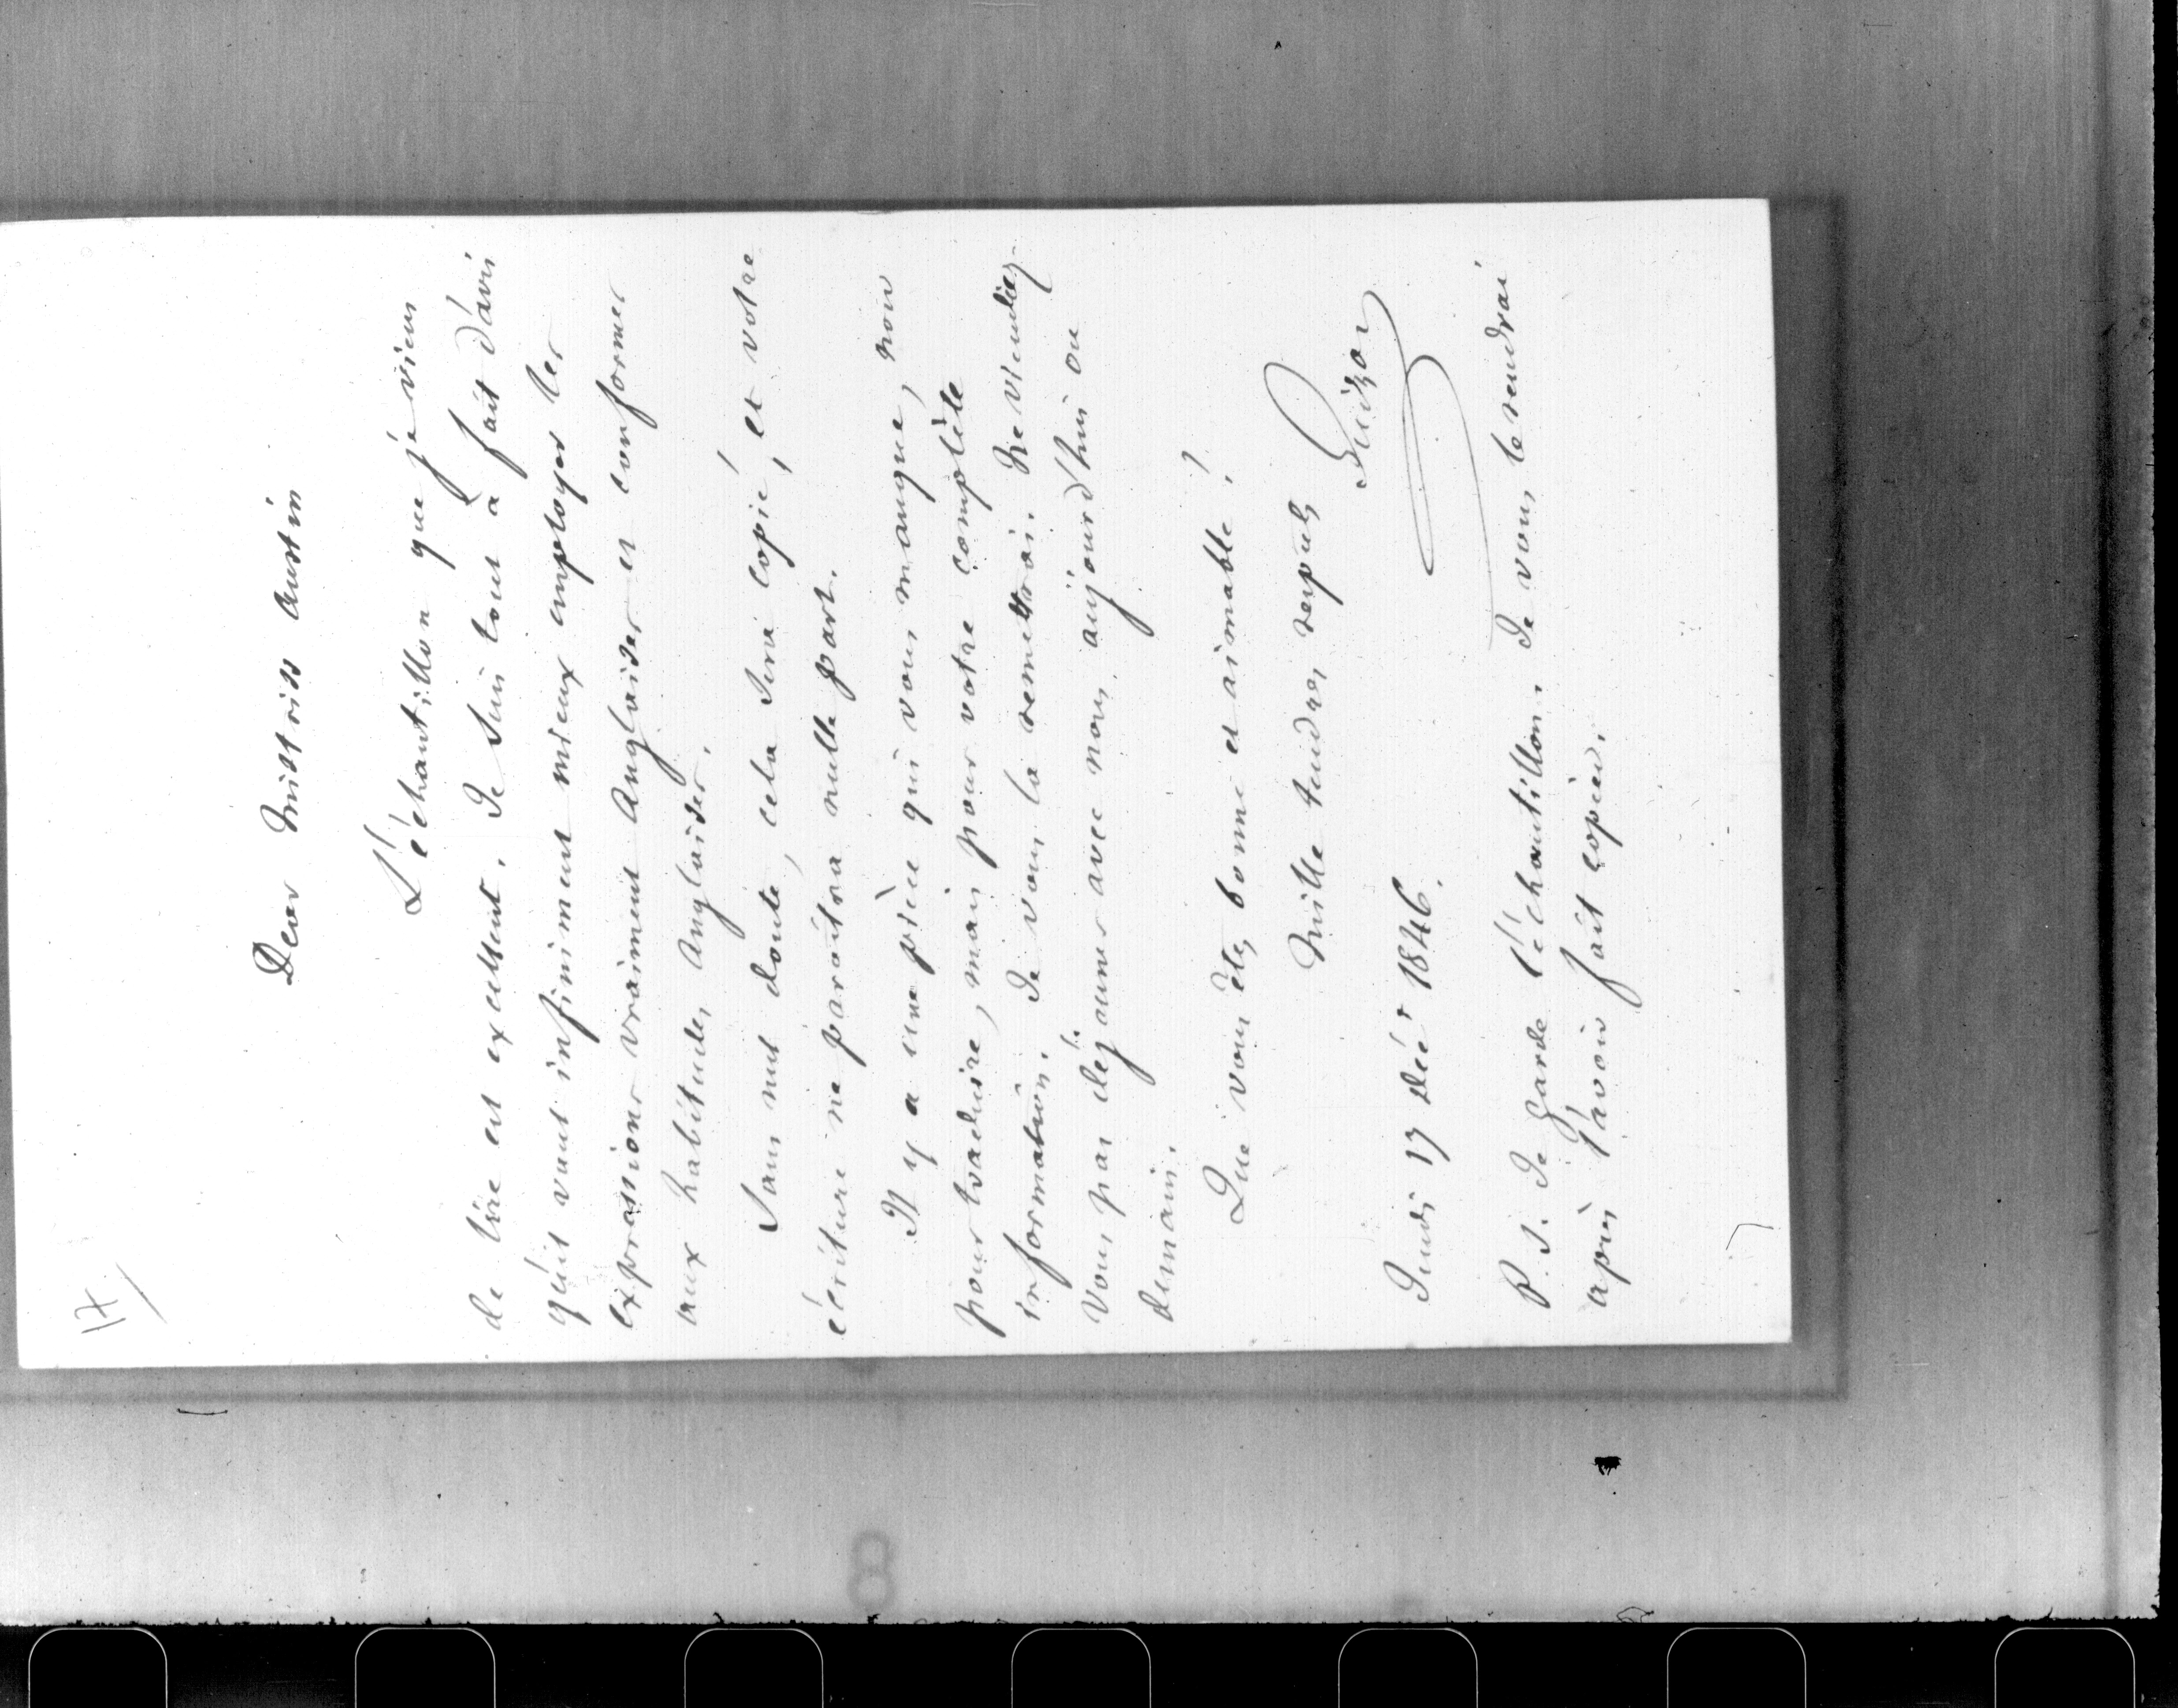 17
Dear Mistriss Austin
L'échantillon que je viens
de lire est excellent. Je suis tout à fait d'avis
qu'il vaut infiniment mieux employer les
expressions vraiment Anglaises et conformes
aux habitudes Anglaises.
Sans nul doute, cela sera copié, et votre
écriture ne paroîtra nulle part.
Il y a une pièce qui vous manque, non
pour traduire, mais pour votre complète
information. Je vous la remettrai. Ne viendrez-
vous pas déjeuner avec nous, aujourd'hui ou
demain.
Que vous êtes bonne et aimable!
Mille tendres respects
Guizot
Jeudi 17 Déc.r 1846.
P. S. Je garde l'échantillon. Je vous le rendrai
après l'avoir fait copier.
8